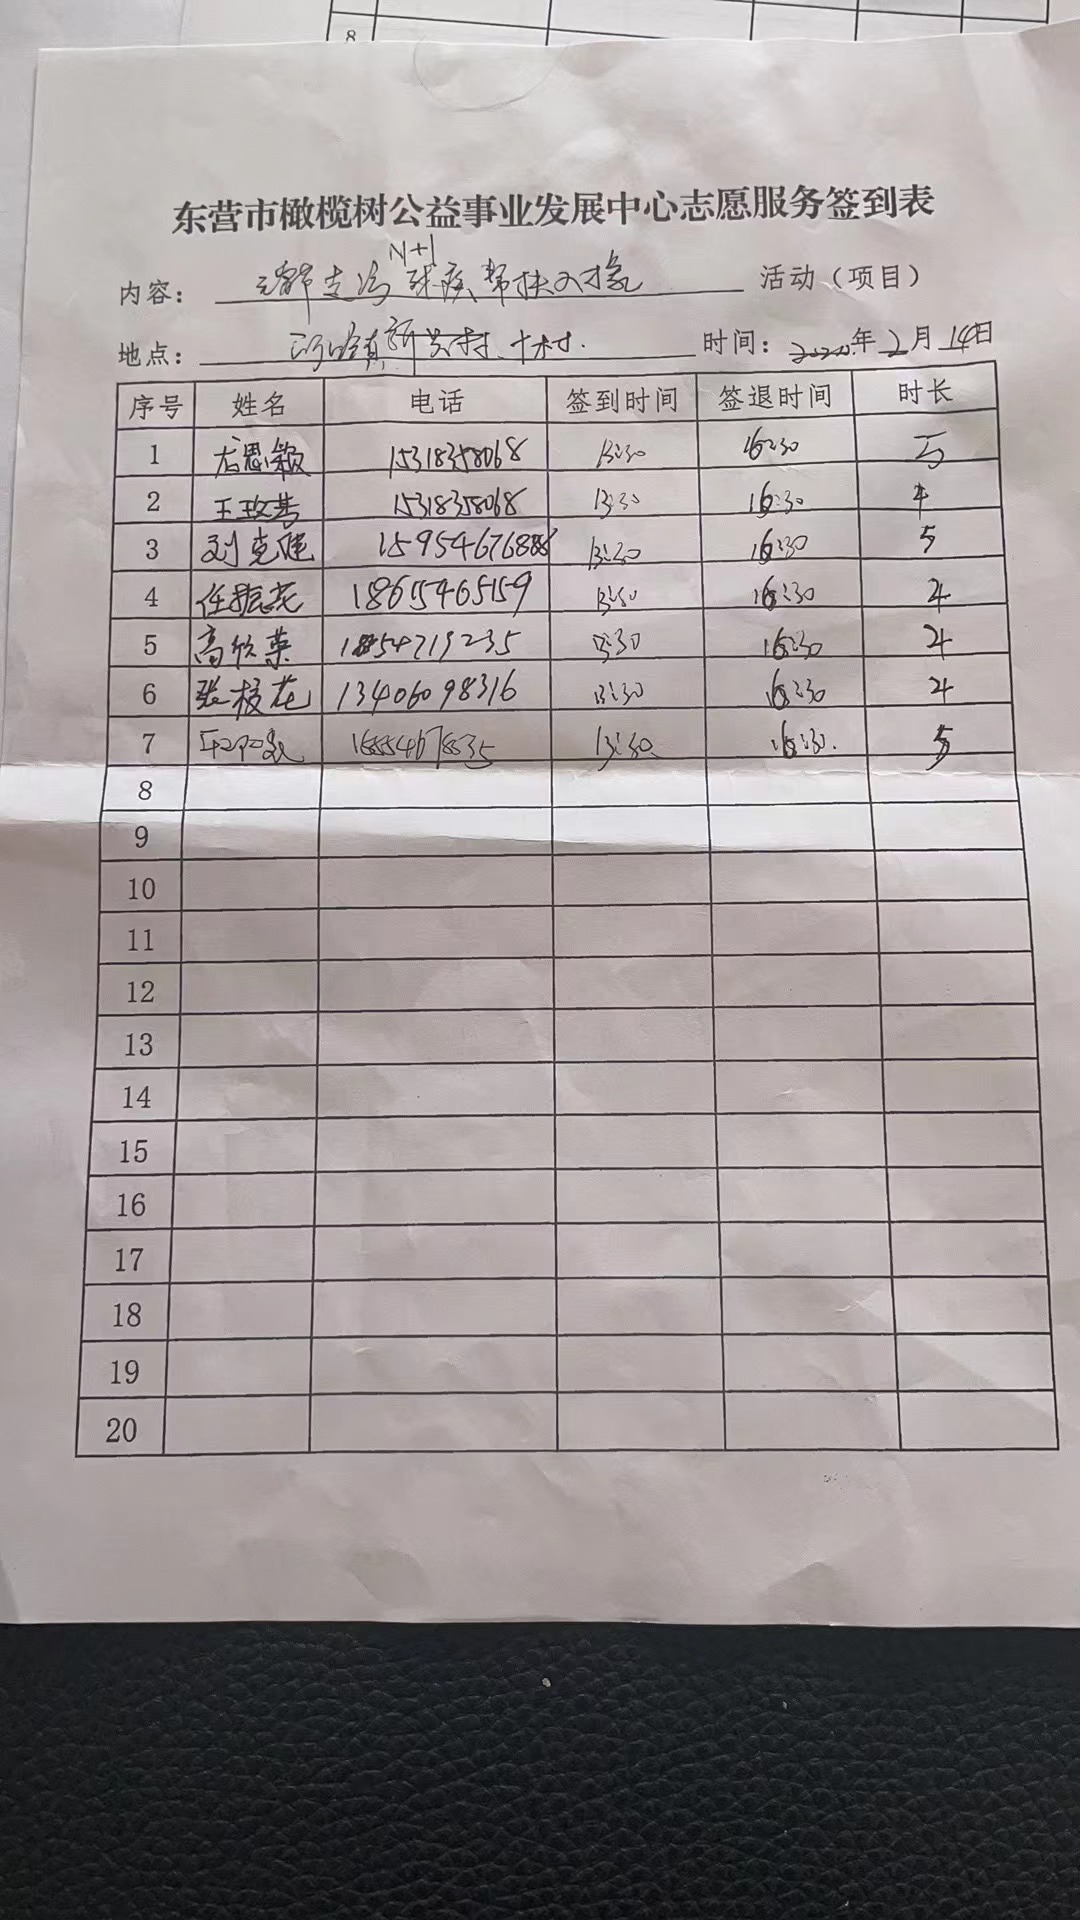 8
东营市橄榄树公益事业发展中心志愿服务签到表
N+1
内容： 元宵节走访 残疾帮扶对象 活动（项目）
地点： 河口镇新兴村、十村. 时间： 年2月14日
序号 姓名 电话 签到时间 签退时间 时长
1 尤思颖 15318358068 13:30 16:30 5
2 王玫芳 15318358068 13:30 16:30 4
3 刘克健 13:30 16:30 5
4 任振花 1865465159 13:30 16:30 4
5 高欣荣 13:30 16:30 4
6 张桂花 13406098316 13:30 16:30 4
7 13:30 16:30. 5
8
9
10
11
12
13
14
15
16
17
18
19
20